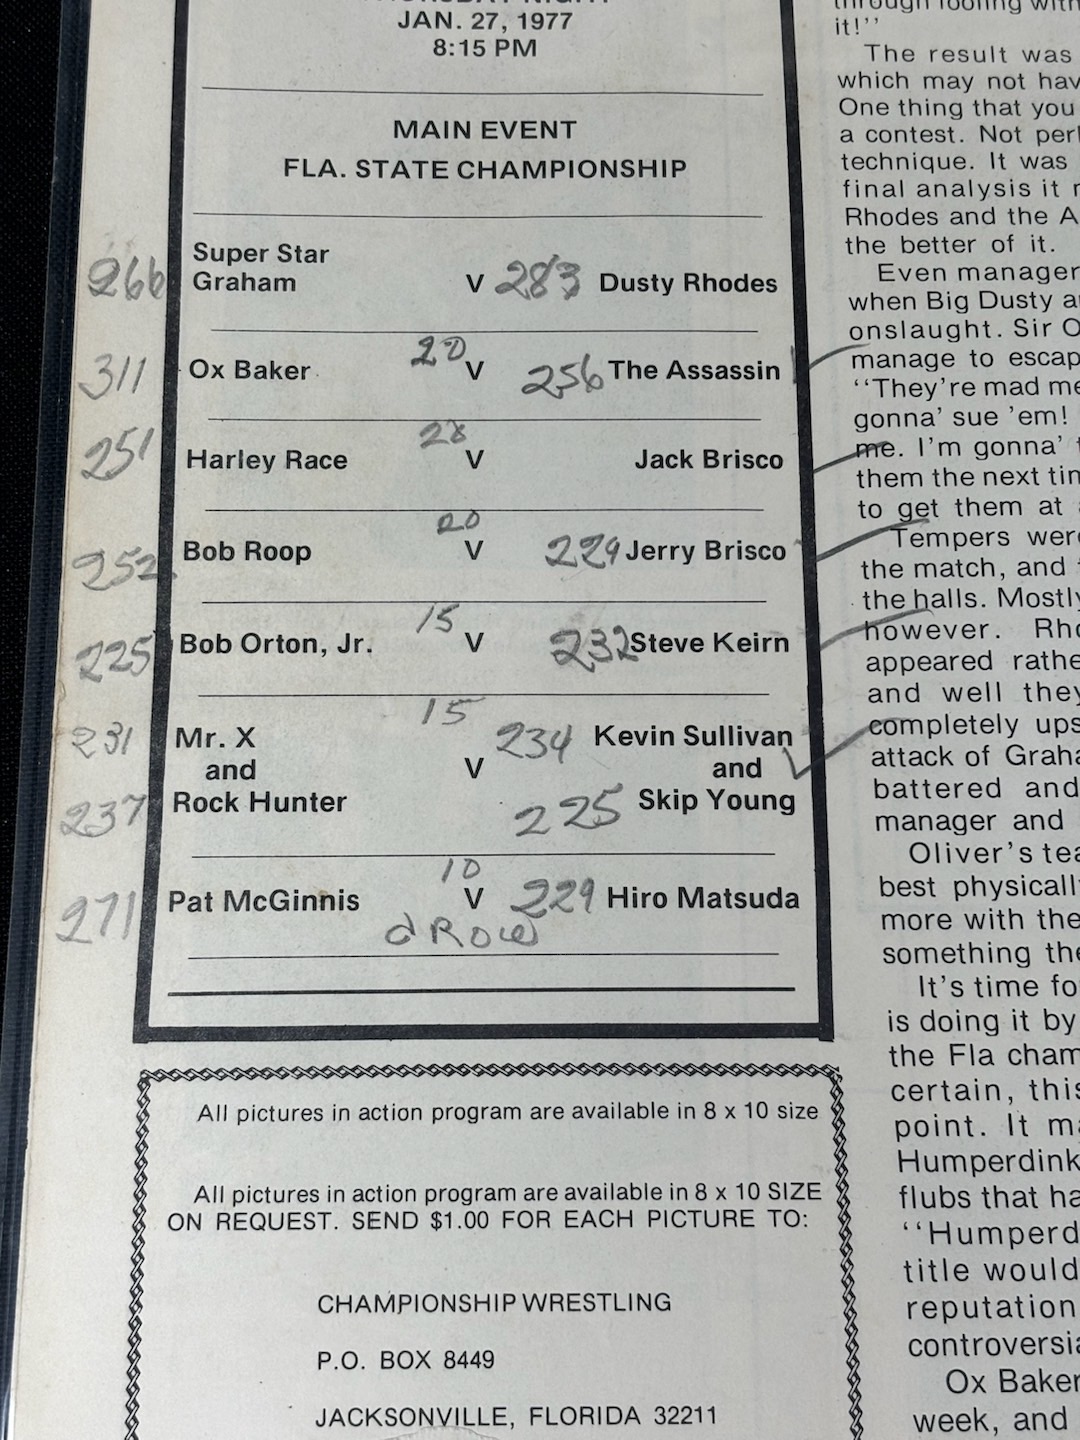 JAN. 27, 1977
8:15 PM
MAIN EVENT
FLA. STATE CHAMPIONSHIP
266 Super Star
Graham V 283 Dusty Rhodes
20
311 Ox Baker V 256 The Assassin
28
251 Harley Race V Jack Brisco
20
252 Bob Roop V 229 Jerry Brisco
15
225 Bob Orton, Jr. V 232 Steve Keirn
15
231 Mr. X 234 Kevin Sullivan
and V and
237 Rock Hunter 225 Skip Young
10
271 Pat McGinnis V 229 Hiro Matsuda
dRow
All pictures in action program are available in 8 x 10 size
All pictures in action program are available in 8 x 10 SIZE
ON REQUEST. SEND $1.00 FOR EACH PICTURE TO:
CHAMPIONSHIP WRESTLING
P.O. BOX 8449
JACKSONVILLE, FLORIDA 32211
it!’’
The result was
which may not hav
One thing that you
a contest. Not per
technique. It was
final analysis it
Rhodes and the A
the better of it.
Even manager
when Big Dusty a
onslaught. Sir O
manage to escap
‘‘They're mad me
gonna' sue 'em!
me. I'm gonna'
them the next tin
to get them at
Tempers were
the match, and
the halls. Mostly
however. Rho
appeared rathe
and well they
completely ups
attack of Graha
battered and
manager and
Oliver's tea
best physicall
more with the
something the
It's time fo
is doing it by
the Fla cham
certain, this
point. It ma
Humperdink
flubs that ha
‘‘Humperd
title would
reputation
controversia
Ox Baker
week, and